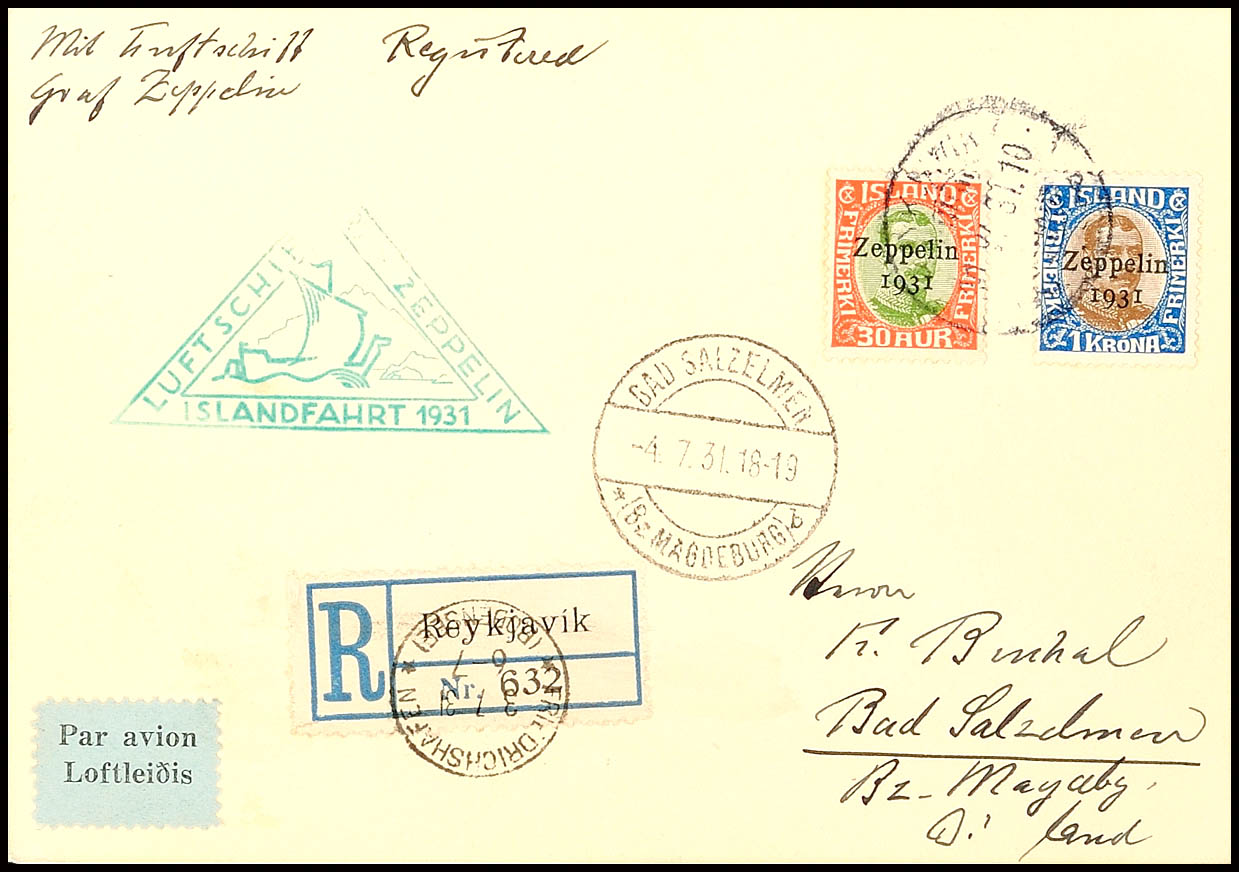 Mit Luftschiff Registered
Graf Zeppelin
ISLAND
FRIMERKI
FRIMERKI
Zeppelin
1931
30 AUR
ISLAND
FRIMERKI
FRIMERKI
Zeppelin
1931
1 KRÓNA
31.10
LUFTSCHIFF
ZEPPELIN
ISLANDFAHRT 1931
BAD SALZELMEN
-4. 7. 31. 18-19
* (Bz MAGDEBURG) b
R
Reykjavík
Nr. 632
FRIEDRICHSHAFEN
(BODENSEE)
3 7 31
6-7
Par avion
Loftleiðis
Herrn
Bad Salzelmen
Bz- Magdebg.